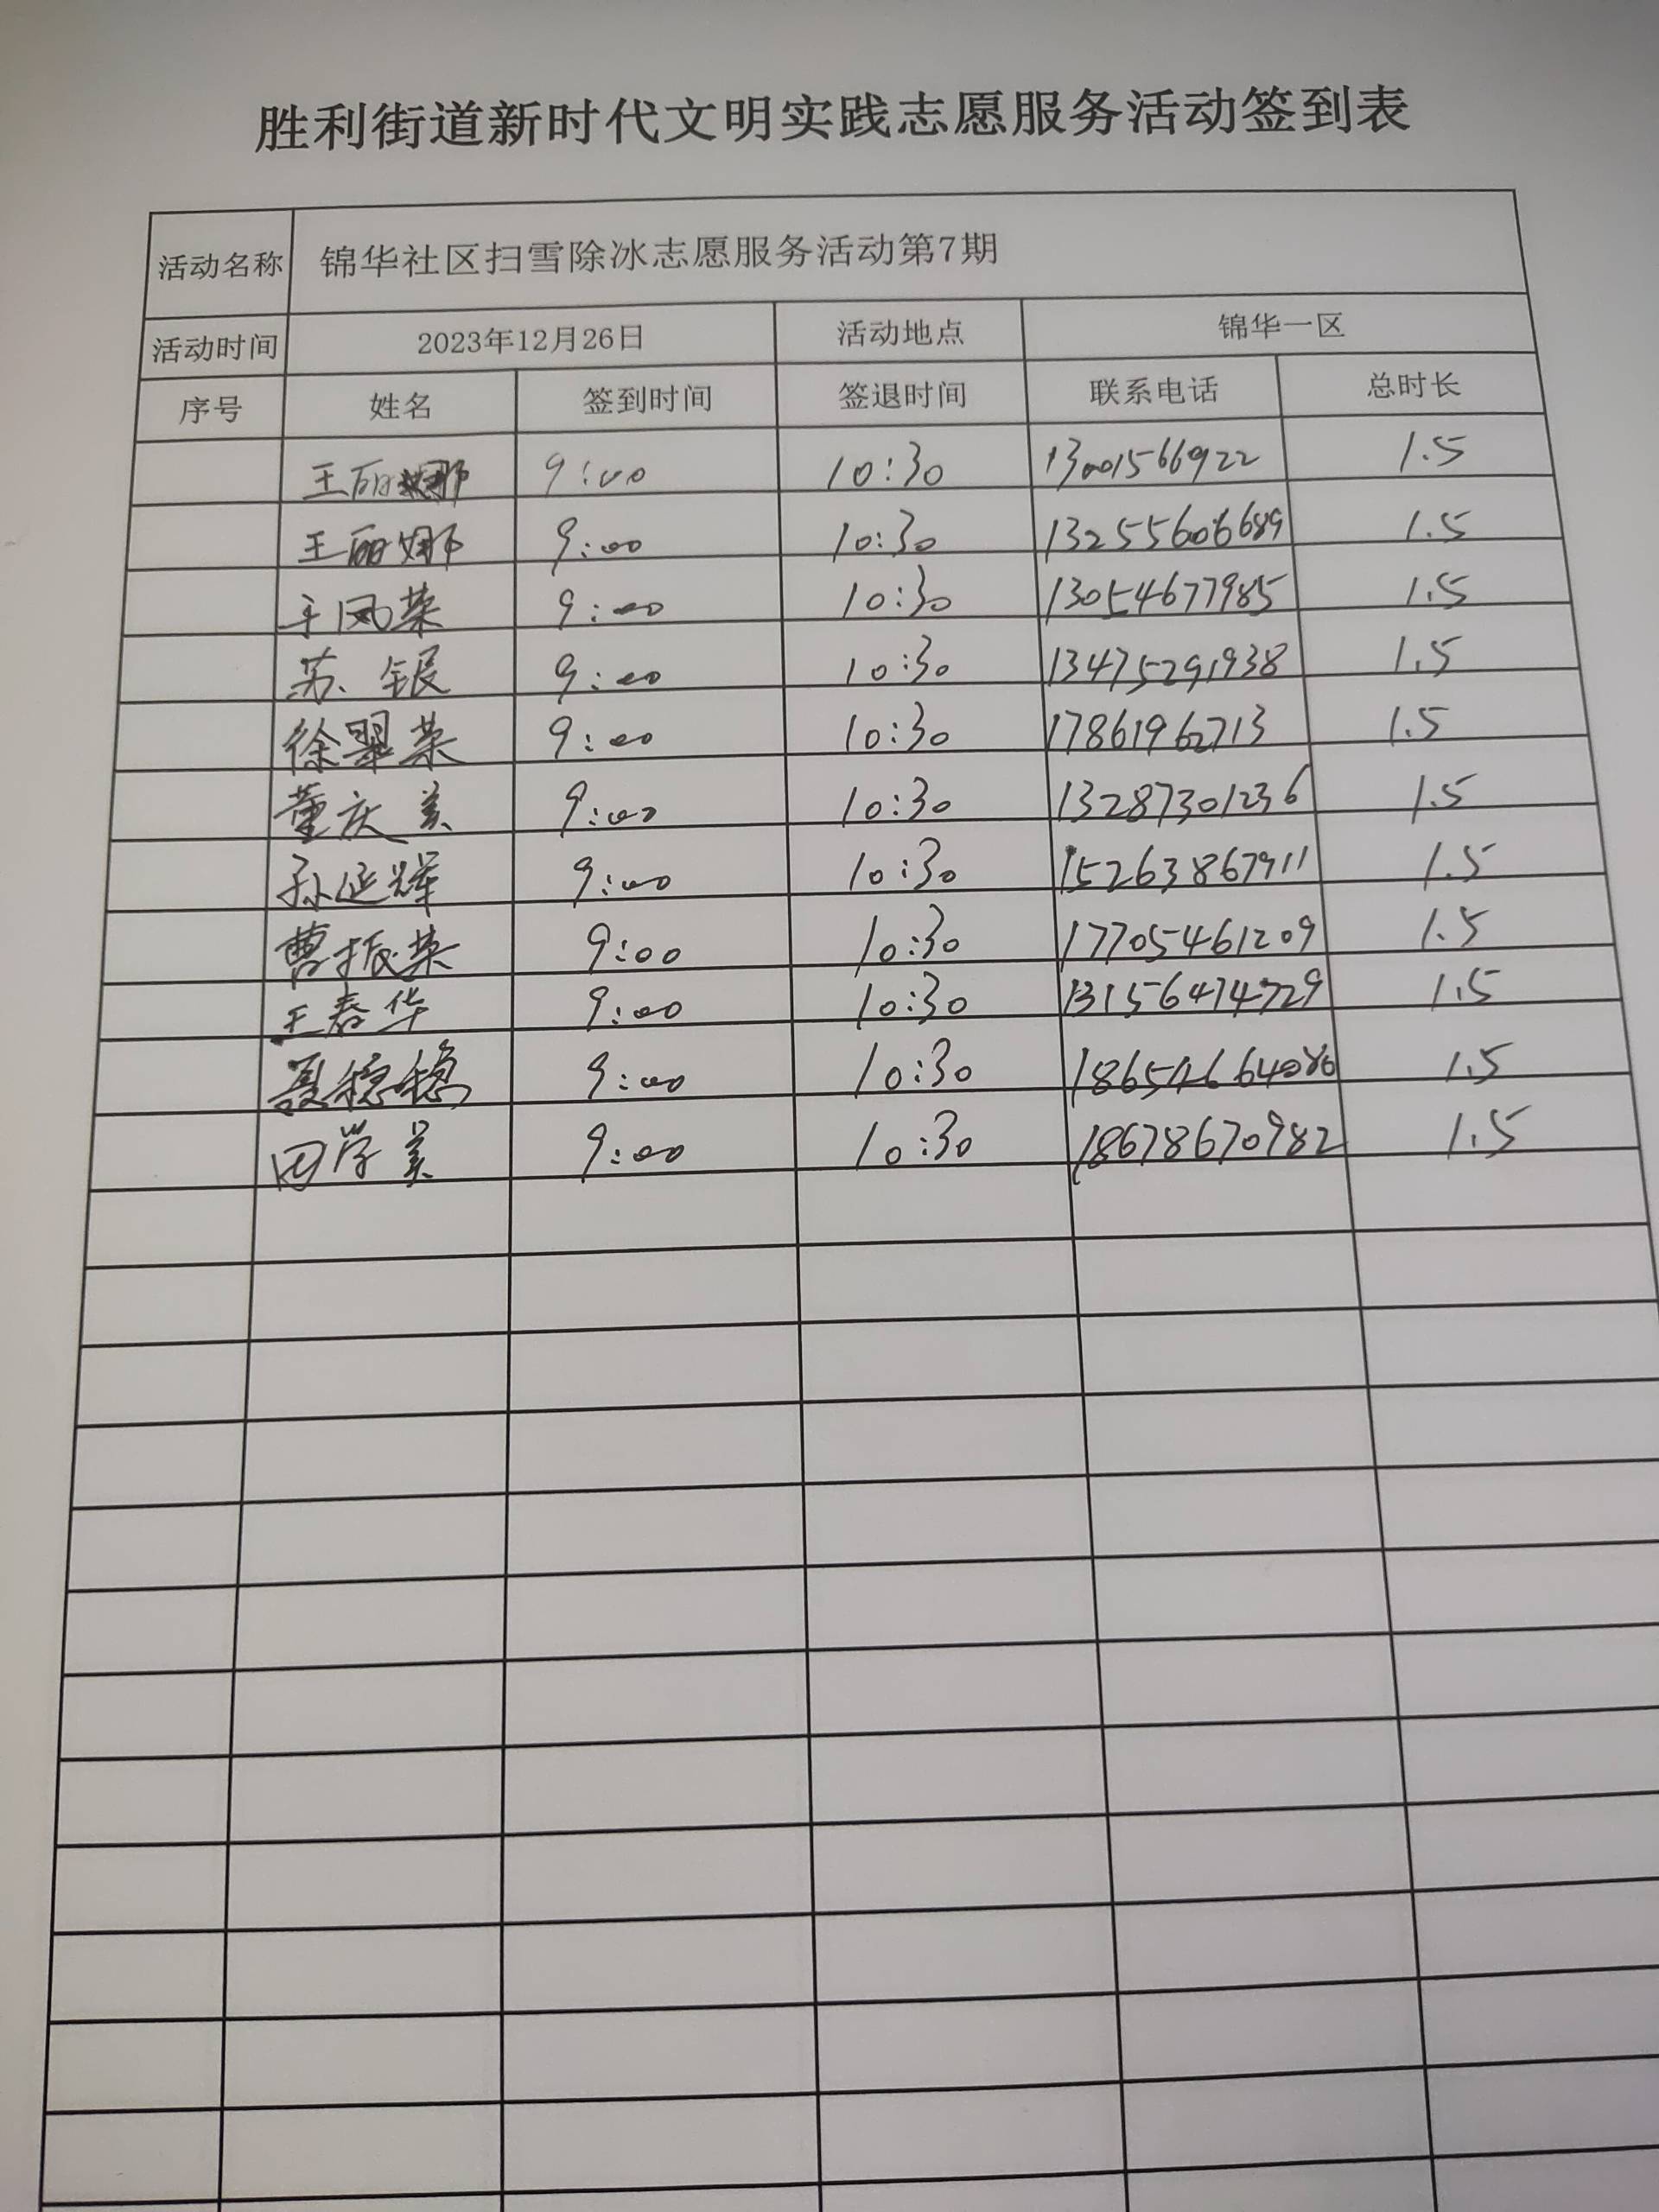 胜利街道新时代文明实践志愿服务活动签到表
活动名称 锦华社区扫雪除冰志愿服务活动第7期
活动时间 2023年12月26日 活动地点 锦华一区
序号 姓名 签到时间 签退时间 联系电话 总时长
王丽娜 9:00 10:30 13001566922 1.5
王丽娜 9:00 10:30 13255606689 1.5
王凤荣 9:00 10:30 13054677985 1.5
苏银 9:00 10:30 13475291938 1.5
徐翠荣 9:00 10:30 17861962713 1.5
董庆美 9:00 10:30 13287301236 1.5
孙延辉 9:00 10:30 15263867911 1.5
曹振荣 9:00 10:30 17705461209 1.5
王春华 9:00 10:30 13156474729 1.5
聂稳稳 9:00 10:30 18654664086 1.5
田学美 9:00 10:30 18678670982 1.5